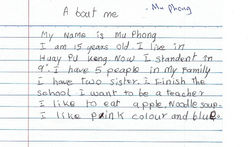 A bout me
. Mu Phong
My Name is Mu Phong
I am 15 years old. I live in
Huay Pu Keng. Now I standent in
9°. I have 5 people in My Family
I have two sister. I Finish the
school I want to be a teacher
I like to eat apple, Noodle soup.
I like pink colour and blue.